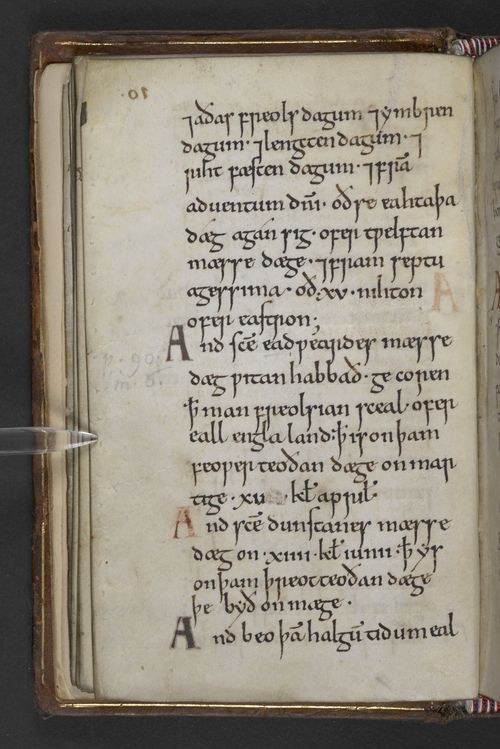 10.
⁊ aðas freols dagum ⁊ ymbren
dagum · ⁊ lengcten dagum · ⁊
riht fæsten dagum · ⁊ frā
adventum dñi · oð se eahtaþa
dæg agán sig · ofer tƿelftan
mæsse dæge · ⁊ fram septu
agessima · oð · xv · nihton
ofer eastron ;
And scē eadƿeardes mæsse
dæg ƿitan habbað · ge coren
ꝥ man freolsian sceal · ofer
eall engla land · ꝥ is on þam
feoƿer teoðan dæge on mar
tige · xv kł april
And scē dunstanes mæsse
dæg on · xiiii · kł iunii · ꝥ ys
on þam þreotteoðan dæge
þe byð on mæge ·
And beo þā halgū tidum eal